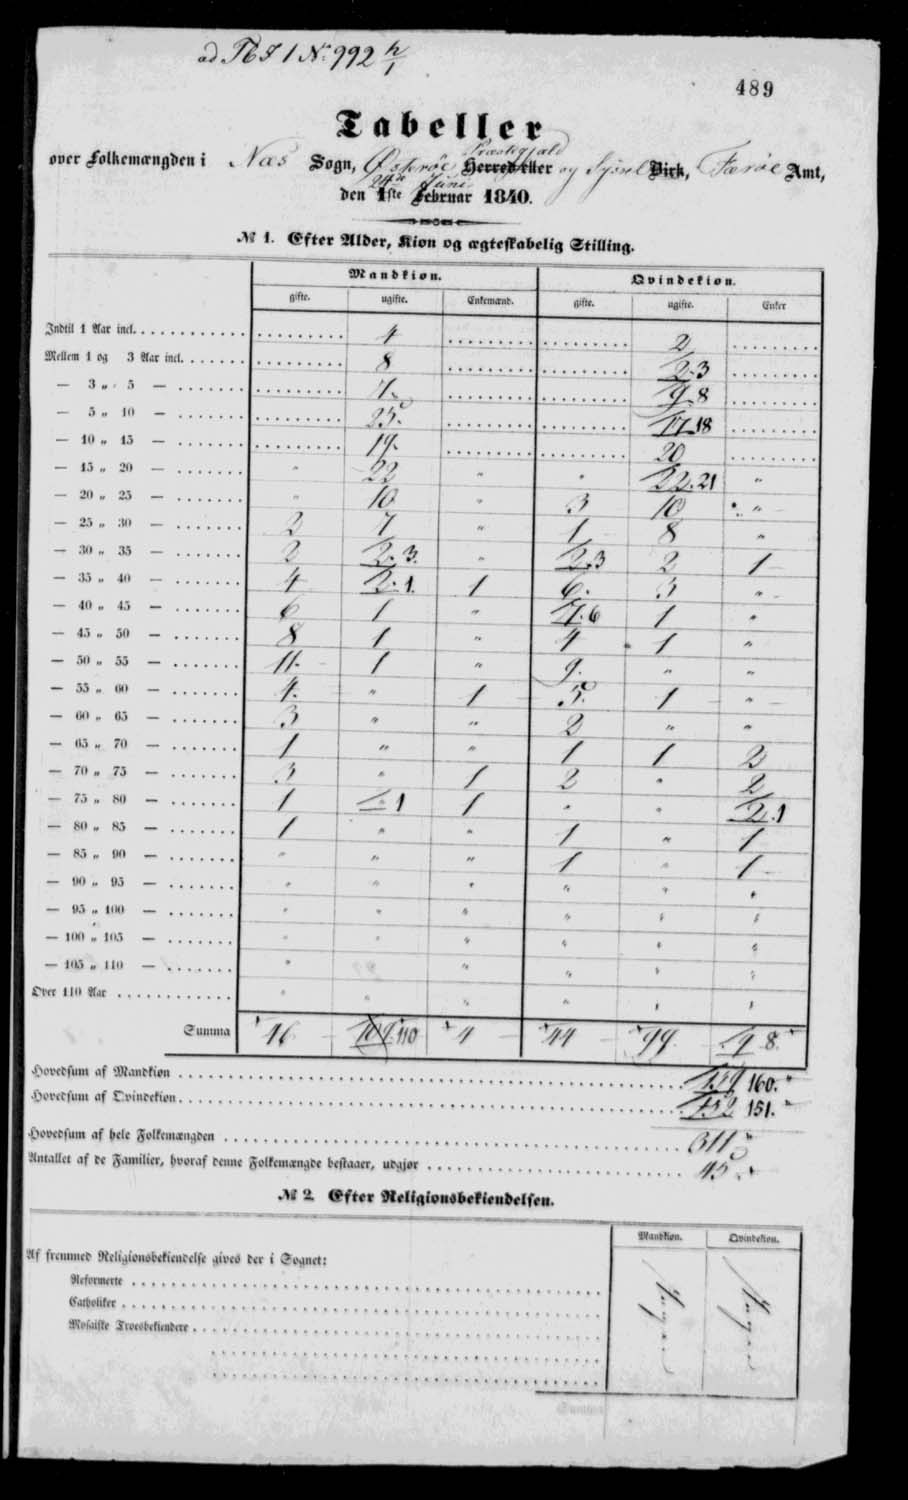 ad Tb I 1 No 992 h/1
489
Tabeller
over Folkemængden i Næs Sogn, Østerøe Præstegjæld Herred eller og Syssel Birk, Færöe Amt,
den 1ste 24de Juni Februar 1840.
№ 1. Efter Alder, Kiøn og ægteskabelig Stilling.
Mandkiøn. Qvindekiøn.
gifte. ugifte. Enkemænd. gifte. ugifte. Enker
Indtil 1 Aar incl. 4 2
Mellem 1 og 3 Aar incl. 8 2. 3
— 3 „ 5 — 7. 9. 8
— 5 „ 10 — 25. 17. 18
— 10 „ 15 — 19. 20
— 15 „ 20 — " 22 " " 22. 21 "
— 20 „ 25 — " 10 " 3 10 "
— 25 „ 30 — 2 7 " 1 8 "
— 30 „ 35 — 2 2. 3. " 2. 3 2 1
— 35 „ 40 — 4 2. 1. 1 6. 3 "
— 40 „ 45 — 6 1 " 7. 6 1 "
— 45 „ 50 — 8 1 " 4 1 "
— 50 „ 55 — 11. 1 " 9. " "
— 55 „ 60 — 4. " 1 5. 1 "
— 60 „ 65 — 3 " " 2 " "
— 65 „ 70 — 1 " " 1 1 2
— 70 „ 75 — 3 " 1 2 " 2
— 75 „ 80 — 1 " 1 1 " " 2. 1
— 80 „ 85 — 1 " " 1 " 1
— 85 „ 90 — " " " 1 " 1
— 90 „ 95 — " " " " " "
— 95 „ 100 — " " " " " "
— 100 „ 105 — " " " " " "
— 105 „ 110 — " " " " "
Over 110 Aar " " " " " "
Summa 46 109. 110 4 44 99 9. 8.
Hovedsum af Mandkiøn 159 160.
Hovedsum af Qvindekiøn 152 151.
Hovedsum af hele Folkemængden 311
Antallet af de Familier, hvoraf denne Folkemængde bestaaer, udgjør 45
№ 2. Efter Religionsbekiendelsen.
Mandkiøn. Qvindekiøn.
Af fremmed Religionsbekiendelse gives der i Sognet:
Reformerte
Catholiker
Mosaiske Troesbekiendere
Ingen Ingen
Summa